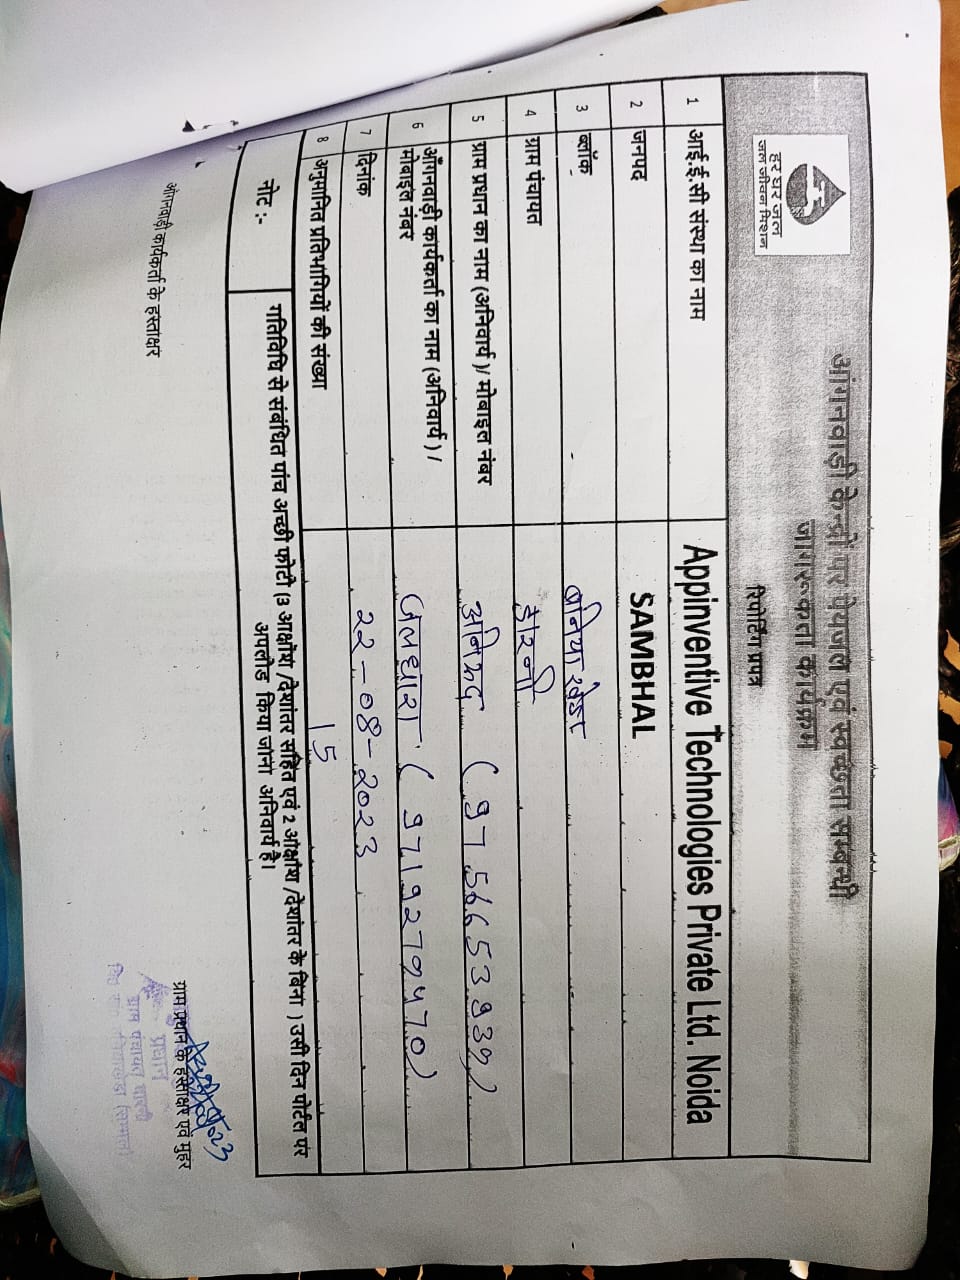 हर घर जल
जल जीवन मिशन
आंगनवाड़ी केन्द्रों पर पेयजल एवं स्वच्छता सम्बन्धी
जागरूकता कार्यक्रम
रिपोर्टिंग प्रपत्र
1 आई.ई.सी संस्था का नाम Appinventive Technologies Private Ltd. Noida
2 जनपद SAMBHAL
3 ब्लॉक बनिया खेडा
4 ग्राम पंचायत
5 ग्राम प्रधान का नाम (अनिवार्य )/ मोबाइल नंबर
6 आँगनवाड़ी कार्यकर्ता का नाम (अनिवार्य ) /
मोबाइल नंबर जलधारा
7 दिनांक 22-08-2023
8 अनुमानित प्रतिभागियों की संख्या 15
नोट :- गतिविधि से संबंधित पांच अच्छी फोटो (3 आक्षांश /देशांतर सहित एवं 2 आक्षांश /देशांतर के बिना ) उसी दिन पोर्टल पर
अपलोड किया जाना अनिवार्य है।
आँगनवाड़ी कार्यकर्ता के हस्ताक्षर
ग्राम प्रधान के हस्ताक्षर एवं मुहर
प्रधान